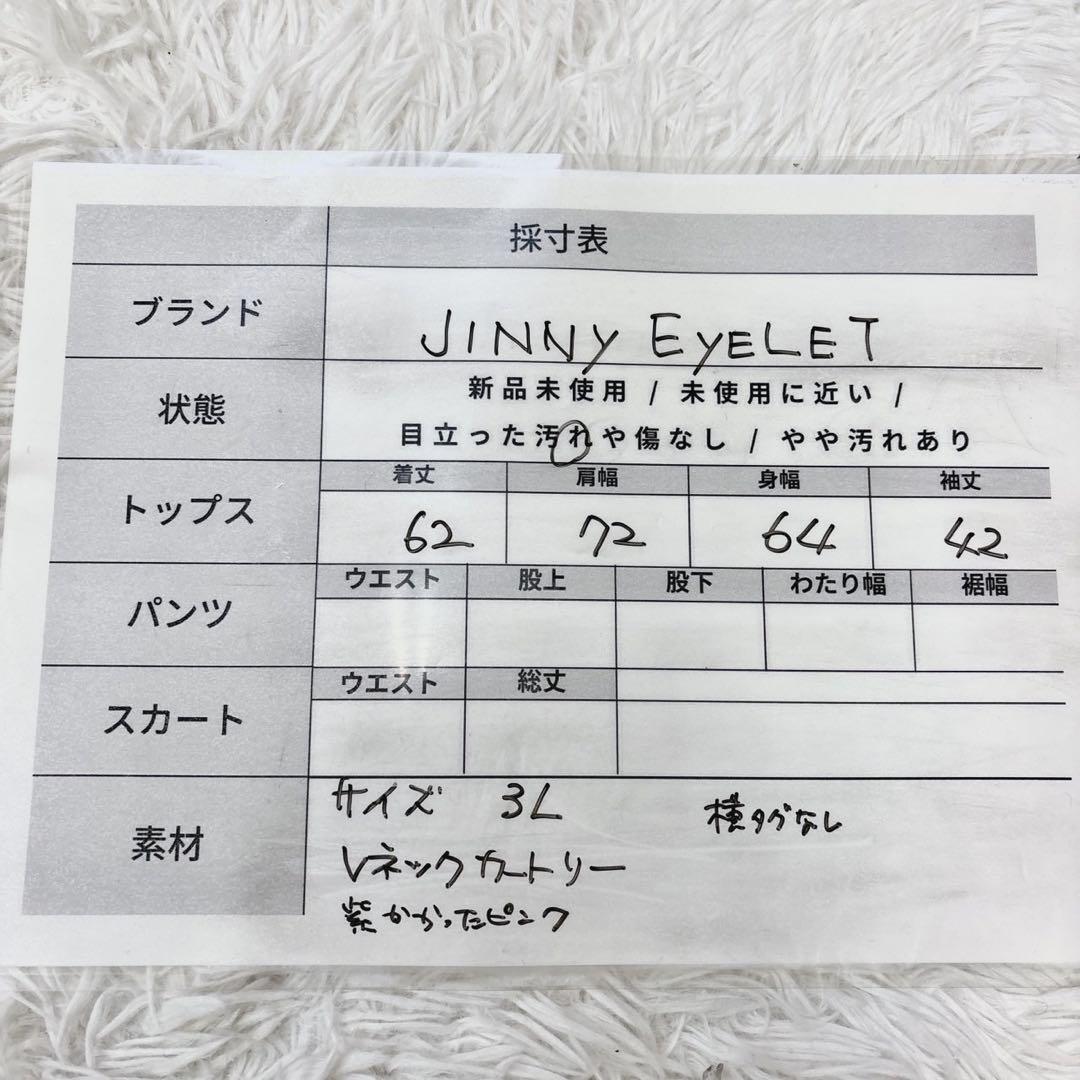 採寸表
ブランド JINNY EyELET
状態 新品未使用 / 未使用に近い /
目立った汚れや傷なし / やや汚れあり
トップス 着丈 肩幅 身幅 袖丈
62 72 64 42
パンツ ウエスト 股上 股下 わたり幅 裾幅
スカート ウエスト 総丈
素材 サイズ 3L 横タグなし
Vネックカットソー
紫かかったピンク